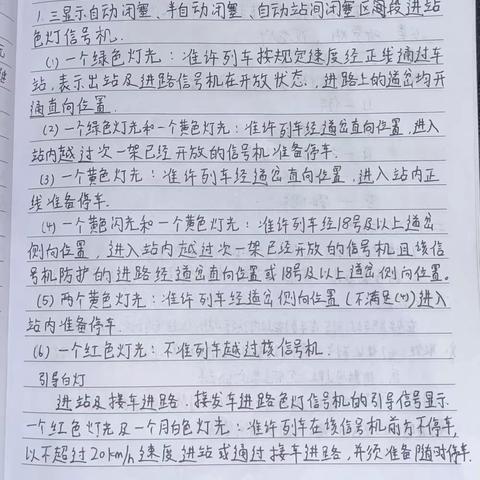 1. 三显示自动闭塞、半自动闭塞、自动站间闭塞区段进站
色灯信号机.
(1) 一个绿色灯光：准许列车按规定速度经正线通过车
站，表示出站及进路信号机在开放状态，进路上的道岔均开
通直向位置.
(2) 一个绿色灯光和一个黄色灯光：准许列车经道岔直向位置，进入
站内越过次一架已经开放的信号机准备停车.
(3) 一个黄色灯光：准许列车经道岔直向位置，进入站内正
线准备停车.
(4) 一个黄色闪光和一个黄色灯光：准许列车经18号及以上道岔
侧向位置，进入站内越过次一架已经开放的信号机且该信
号机防护的进路经道岔直向位置或18号及以上道岔侧向位置。
(5) 两个黄色灯光：准许列车经道岔侧向位置(不满足(4))进入
站内准备停车.
(6) 一个红色灯光：不准列车越过该信号机.
引导白灯
进站及接车进路、接发车进路色灯信号机的引导信号显示
一个红色灯光及一个月白色灯光：准许列车在该信号机前方不停车，
以不超过20km/h速度进站或通过接车进路，并须准备随时停车.